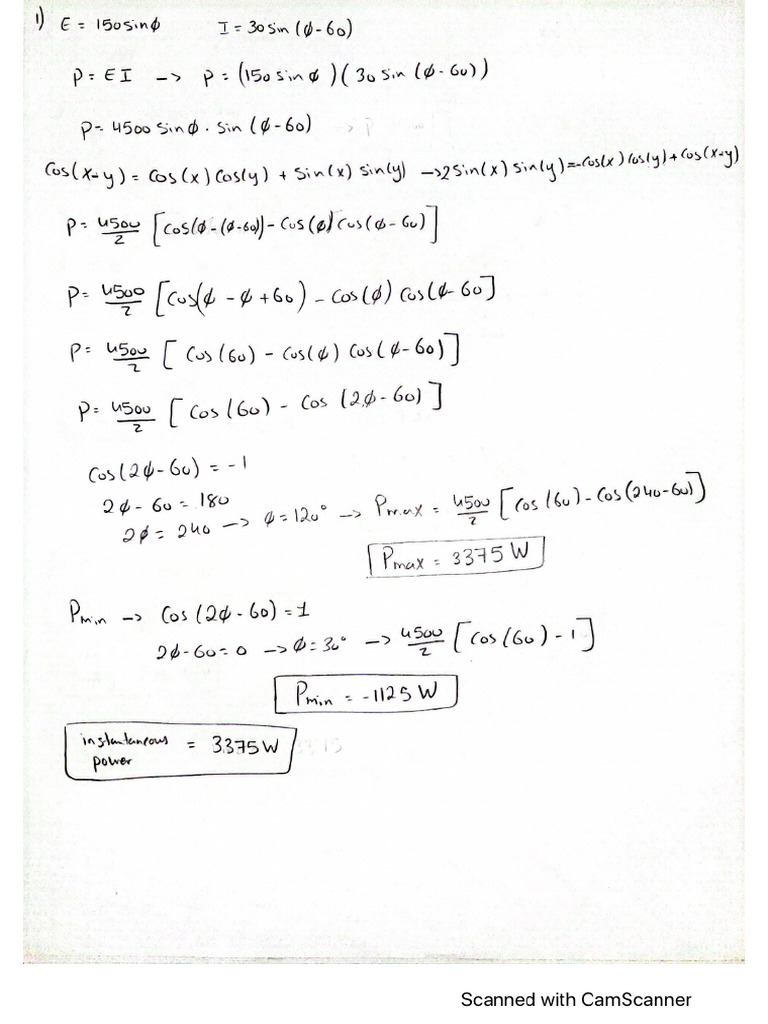 1) E = 150 sinφ I = 30 sin (φ-60)
P = E I -> P = (150 sin φ)(30 sin (φ-60))
P = 4500 sinφ · sin (φ-60)
Cos(x-y) = Cos(x) Cos(y) + Sin(x) Sin(y) -> 2 Sin(x) Sin(y) = -Cos(x) Cos(y) + Cos(x-y)
P = 4500/2 [Cos(φ-(φ-60)) - Cos(φ) Cos(φ-60)]
P = 4500/2 [Cos(φ - φ + 60) - Cos(φ) Cos(φ-60]
P = 4500/2 [Cos(60) - Cos(φ) Cos(φ-60)]
P = 4500/2 [Cos(60) - Cos (2φ-60)]
Cos(2φ-60) = -1
2φ-60 = 180
2φ = 240 -> φ = 120° -> Pmax = 4500/2 [Cos(60) - Cos(240-60)]
Pmax = 3375 W
Pmin -> Cos (2φ-60) = 1
2φ-60 = 0 -> φ = 30° -> 4500/2 [Cos(60) - 1]
Pmin = -1125 W
instantaneous power = 3375 W
Scanned with CamScanner